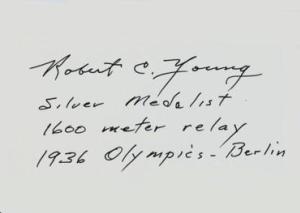 Robert C. Young
Silver Medalist
1600 meter relay
1936 Olympics - Berlin